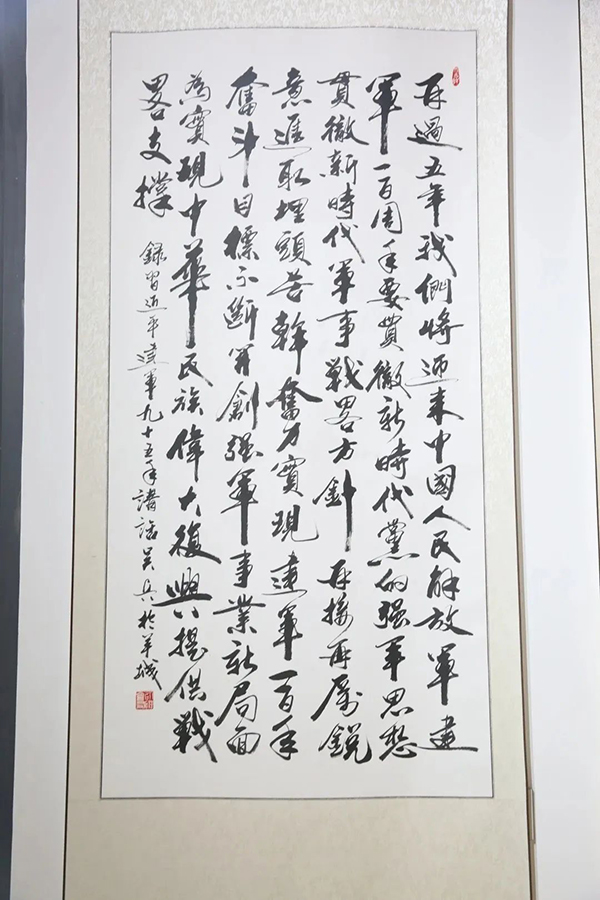 再過五年我們將迎来中國人民解放軍建
軍一百周年要貫徹新時代黨的强軍思想
貫徹新時代軍事戰畧方針再接再厲銳
意進取埋頭苦幹奮力實現建軍一百年
奮斗目標不斷開創强軍事業新局面
為實現中華民族偉大復興提供戰
畧支撑
録習近平建軍九十五年講話吴兵於羊城